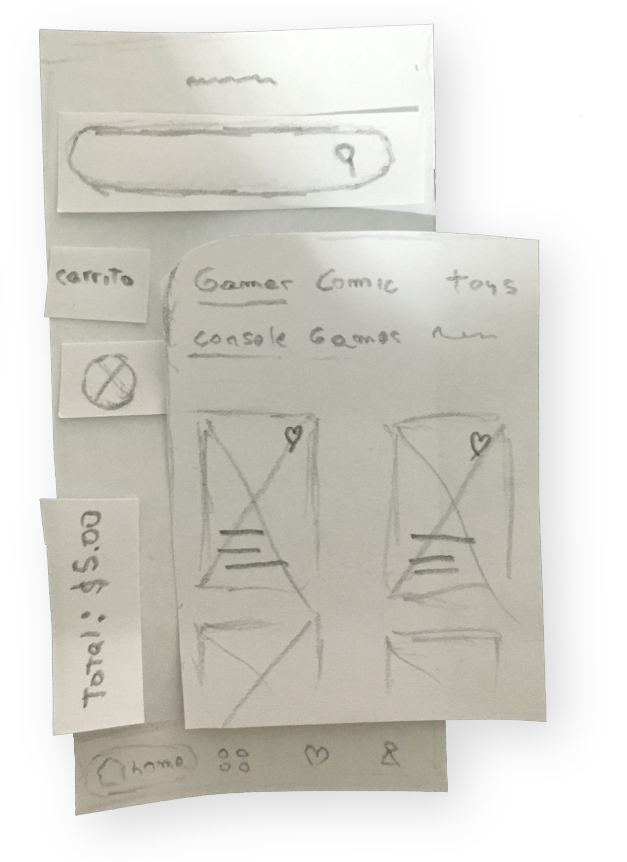 carrito
Gamer Comic toys
console Games
Total: $5.00
home